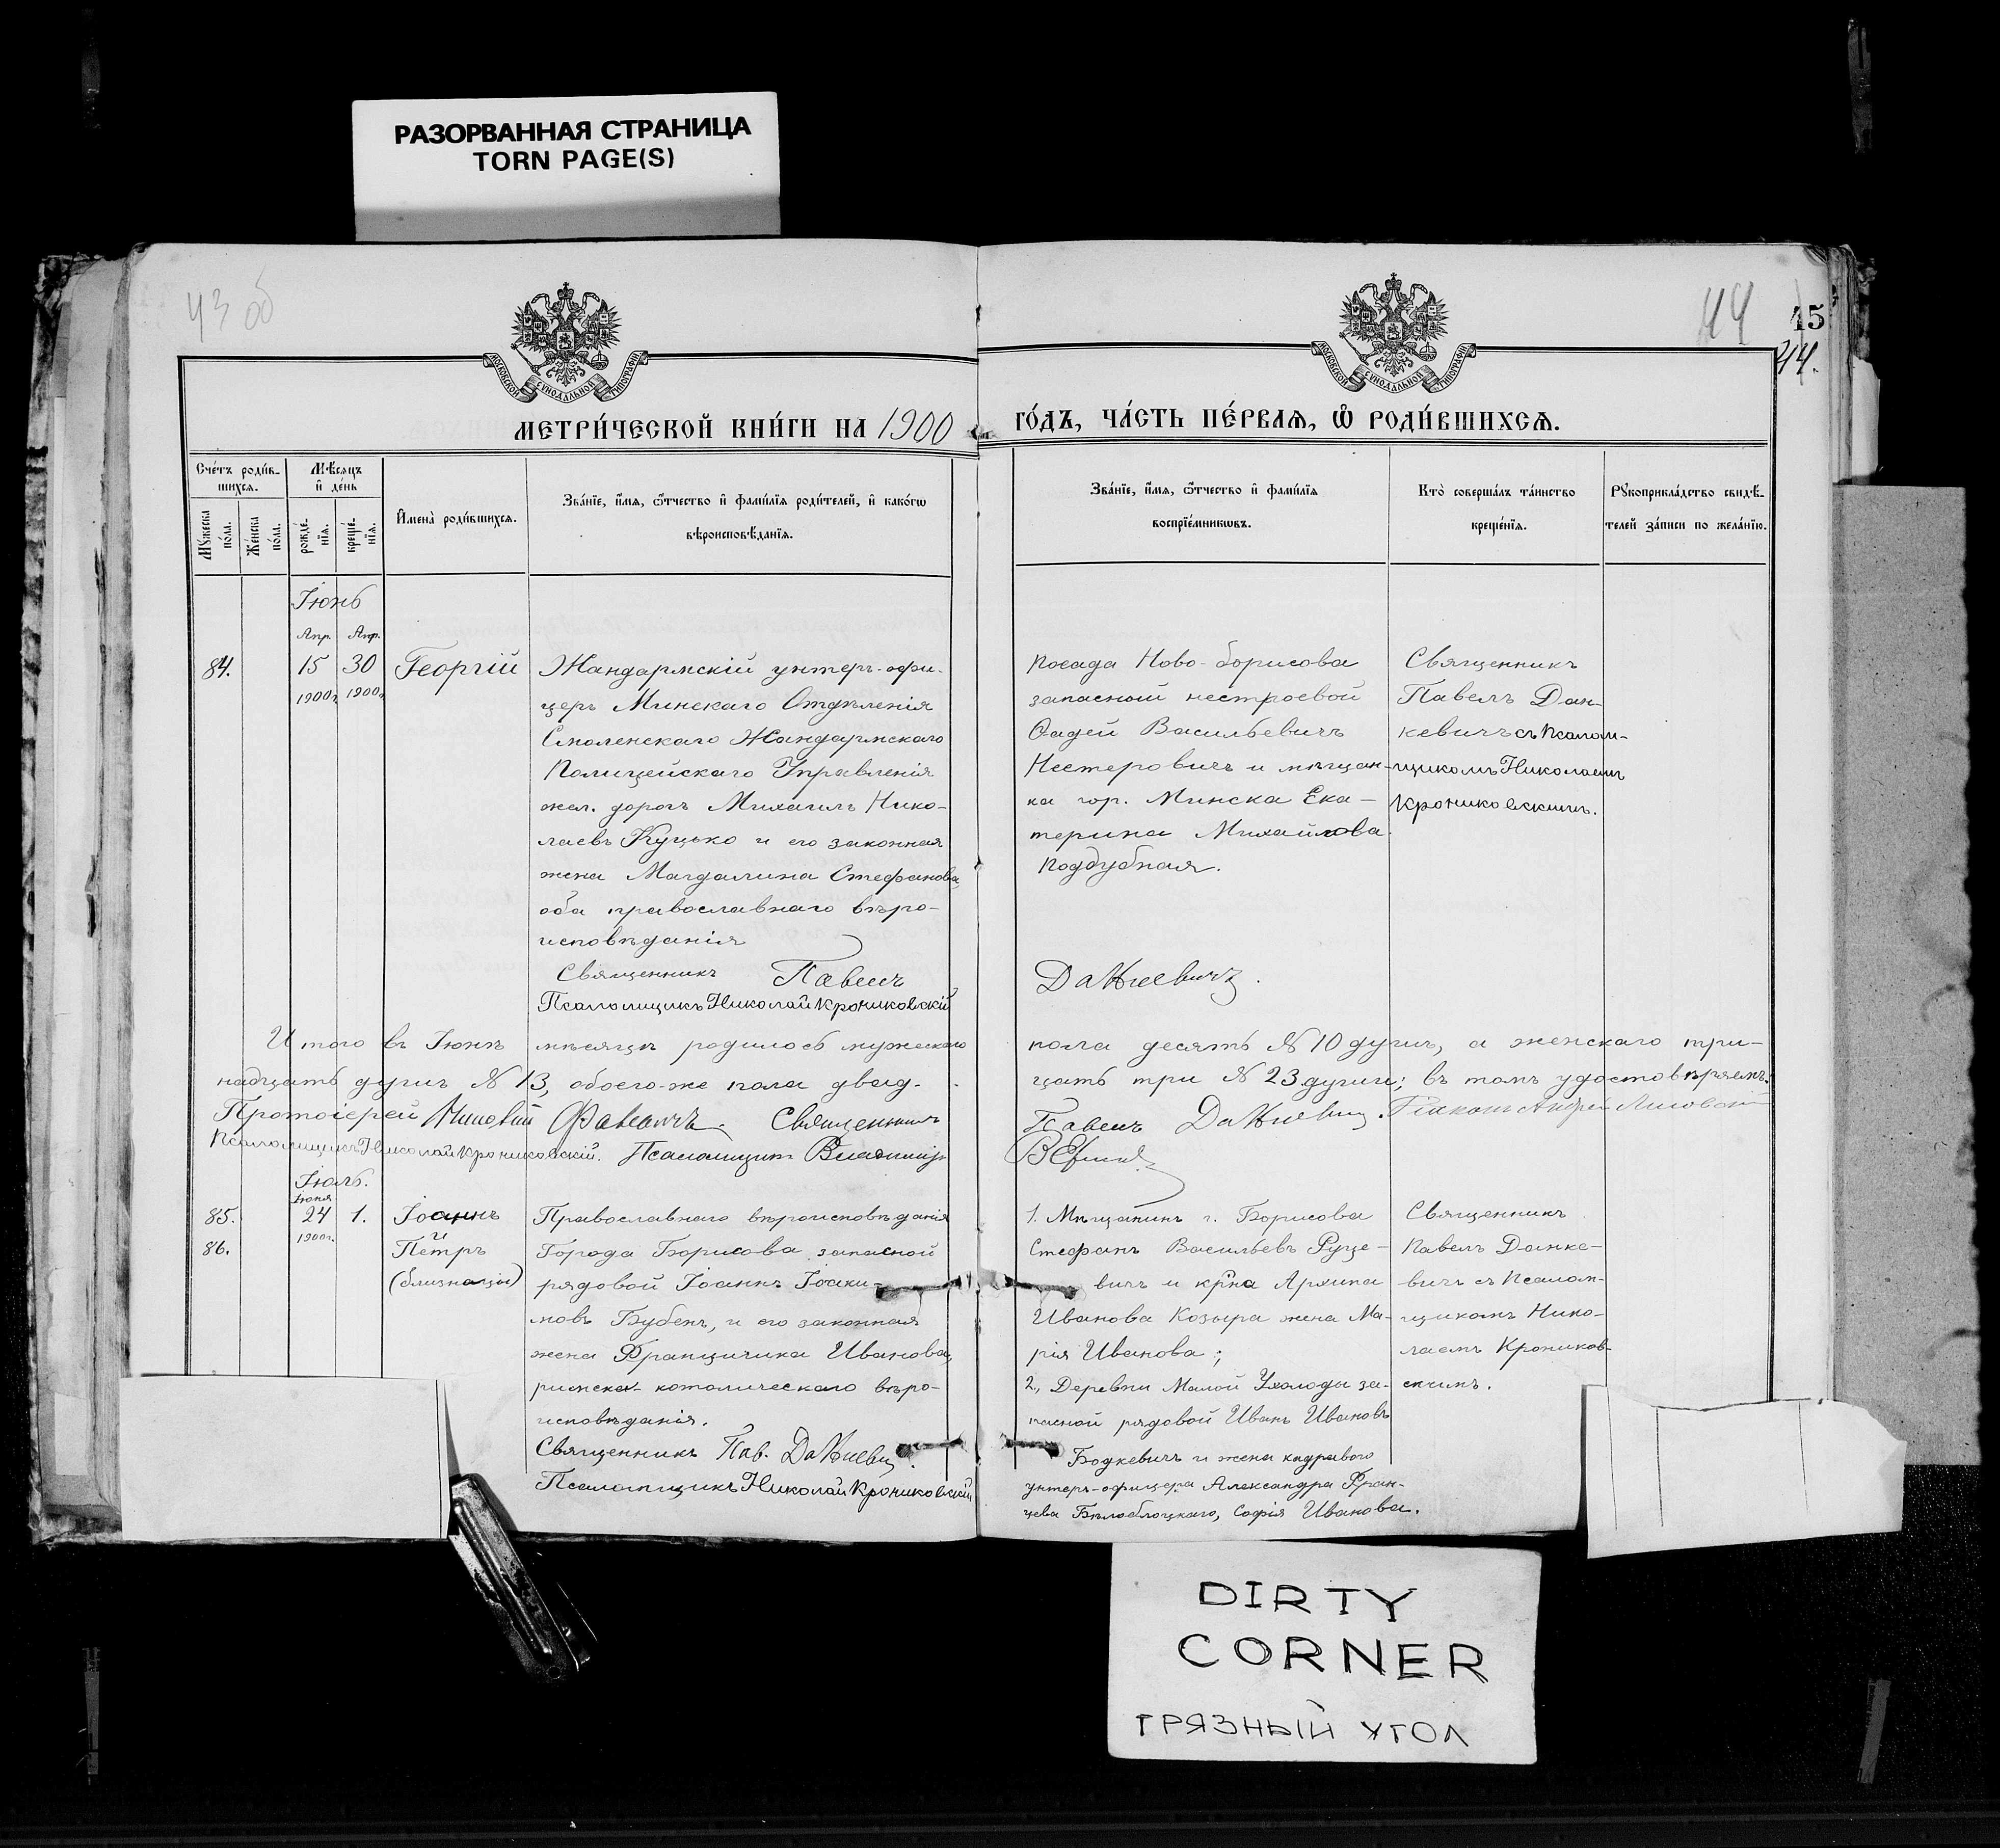 РАЗОРВАННАЯ СТРАНИЦА
TORN PAGE(S)
43 об
44
45
44.
МОСКОВСКОЙ СѴНОДАЛЬНОЙ ТИПОГРАФІИ
МОСКОВСКОЙ СѴНОДАЛЬНОЙ ТИПОГРАФІИ
МЕТРИ́ЧЕСКОЙ КНИ́ГИ НА 1900 ГО́ДЪ, ЧА́СТЬ ПЕ́РВАЯ, Ѡ РОДИ́ВШИХСЯ.
Сче́тъ роди́вшихся.
Мꙋ́жеска по́ла.
Же́нска по́ла.
Мѣ́сяцъ и҆ де́нь
рожде́нїя.
креще́нїя.
И҆мена̀ роди́вшихся.
Зва́нїе, и҆́мя, ѻ҆́тчество и҆ фами́лїя роди́телей, и҆ како́гѡ
вѣроисповѣ́данїя.
Зва́нїе, и҆́мя, ѻ҆́тчество и҆ фами́лїя
воспрїе́мникѡвъ.
Кто̀ соверша́лъ та́инство
креще́нїя.
Рꙋкоприкла́дство свидѣ́-
телей за́писи по жела́нїю.
Іюнь
Апр. Апр.
84. 15 30 Георгій
1900г. 1900г.
Жандармскій унтеръ-офи-
церъ Минскаго Отдѣленія
Смоленскаго Жандармскаго
Полицейскаго Управленія
жел. дорогъ Михаилъ Нико-
лаевъ Куцько и его законная
жена Магдалина Стефанова,
оба православнаго вѣро-
исповѣданія
Священникъ Павелъ
Псаломщикъ Николай Крониковскій
Посада Ново-борисова
запасный нестроевой
Ѳадей Васильевичъ
Нестеровичъ и мѣщан-
ка гор. Минска Ека-
терина Михайлова
Поддубная.
Данкевичъ.
Священникъ
Павелъ Дан-
кевичъ съ Псалом-
щикомъ Николаемъ
Крониковскимъ.
Итого въ Іюнѣ мѣсяцѣ родилось мужескаго пола десять № 10 душъ, а женскаго три-
надцать душъ № 13, обоего-же пола двад- цать три № 23 души; въ томъ удостовѣряемъ:
Протоіерей Священникъ Павелъ Данкевичъ. Андрей Лисовскій
Псаломщикъ Николай Крониковскій. Псаломщикъ Владиміръ
Іюль.
Іюня
85. 24 1. Іоаннъ
1900г. и
86. Петръ
(близнецы)
Православнаго вѣроисповѣданія
Города Борисова запасной
рядовой Іоаннъ Іоаки-
мовъ Бубенъ, и его законная
жена Францишка Иванова,
римско-католическаго вѣро-
исповѣданія.
Священникъ Пав. Данкевичъ.
Псаломщикъ Николай Крониковскій
1. Мѣщанинъ г. Борисова
Стефанъ Васильевъ Руце-
вичъ и кр-на Архипа
Иванова Козыра жена Ма-
рія Иванова;
2, Деревни Малой Ухолоды за-
пасной рядовой Иванъ Ивановъ
Бодкевичъ и жена кадроваго
унтеръ-офицера Александра Фран-
цева Бѣлоблоцкаго, Софія Иванова.
Священникъ
Павелъ Данке-
вичъ съ Псалом-
щикомъ Нико-
лаемъ Кроников-
скимъ.
DIRTY
CORNER
ГРЯЗНЫЙ УГОЛ